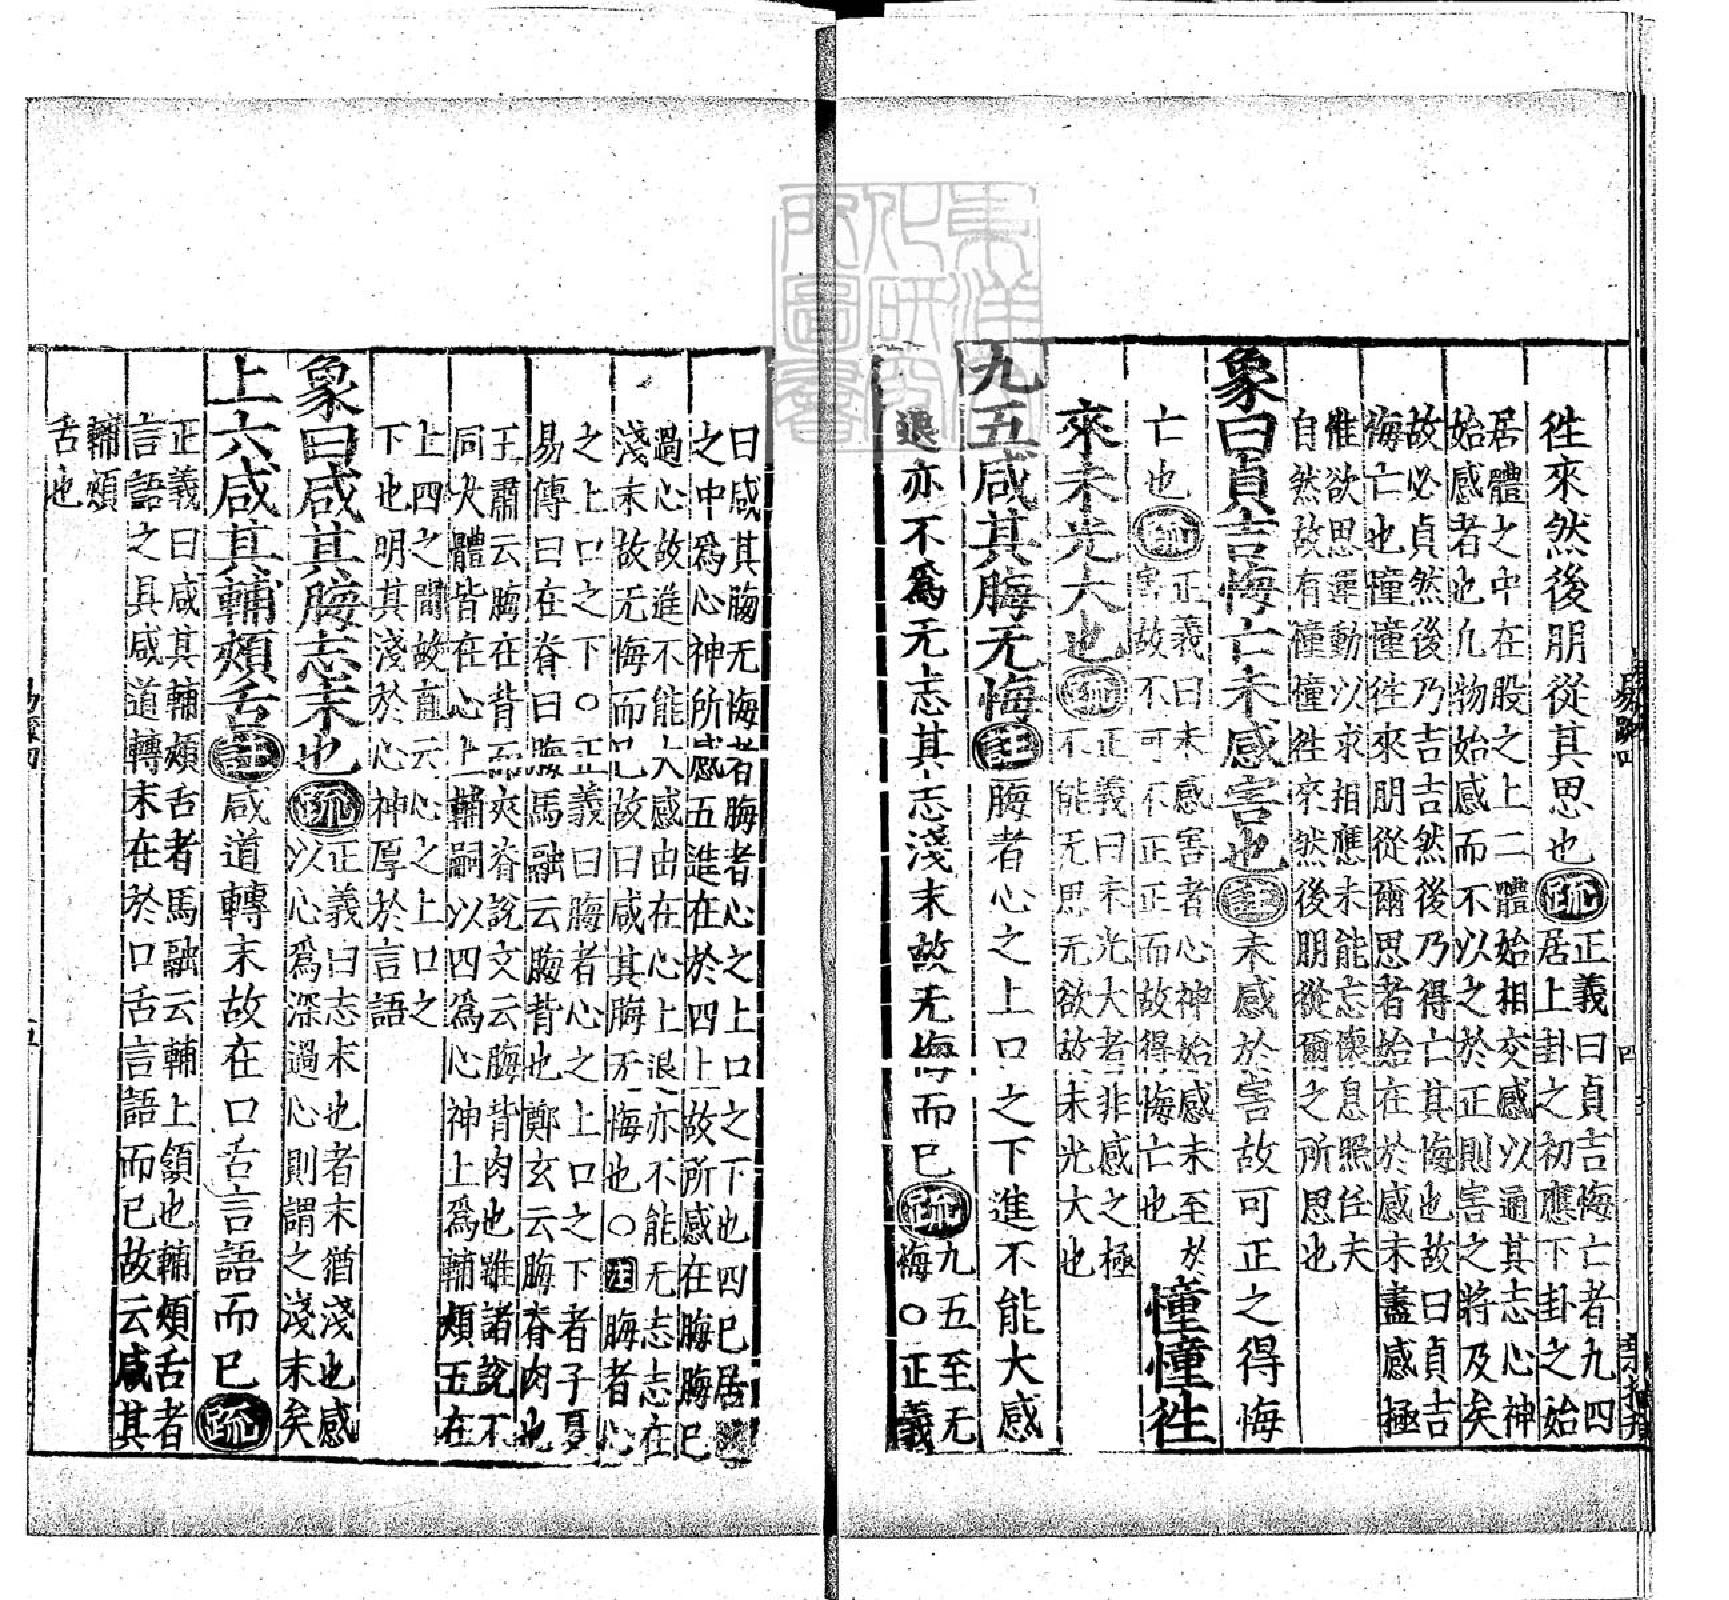 徃來然後朋從其思也疏正義曰貞吉悔亡者九四
居上卦之初應下卦之始
居體之中在股之上二體始相交感以通其志心神
始感者也凢物始感而不以之於正則害之將及矣
故必貞然後乃吉吉然後乃得亡其悔也故曰貞吉
悔亡也憧憧徃來朋從爾思者始在於感未盡感極
惟欲思運動以求相應未能忘懷息照任夫
自然故有憧憧徃來然後朋從爾之所思也
象曰貞吉悔亡未感害也註未感於害故可正之得悔
亡也疏正義曰未感害者心神始感未至於
害故不可不正正而故得悔亡也
憧憧徃
來未光大也疏正義曰未光大者非感之極
不能无思无欲故未光大也
九五咸其脢无悔註脢者心之上口之下進不能大感
退亦不爲无志其志淺末故无悔而已疏九五至无
悔○正義
曰咸其脢无悔者脢者心之上口之下也四已居
之中爲心神所感五進在於四上故所感在脢脢已
過心故進不能大感由在心上退亦不能无志志在
淺末故无悔而已故曰咸其脢无悔也○註脢者心
之上口之下○正義曰脢者心之上口之下者子夏
易傳曰在脊曰脢馬融云脢背也鄭玄云脢脊肉也
王肅云脢在背而夾脊說文云脢背肉也雖諸說不
同大體皆在心上輔嗣以四爲心神上爲輔頰五在
上四之間故直云心之上口之
下也明其淺於心神厚於言語
象曰咸其脢志末也疏正義曰志末也者末猶淺也感
以心爲深過心則謂之淺末矣
上六咸其輔頰舌註咸道轉末故在口舌言語而已疏
正義曰咸其輔頰舌者馬融云輔上頷也輔頰舌者
言語之具咸道轉末在於口舌言語而已故云咸其
輔頰
舌也